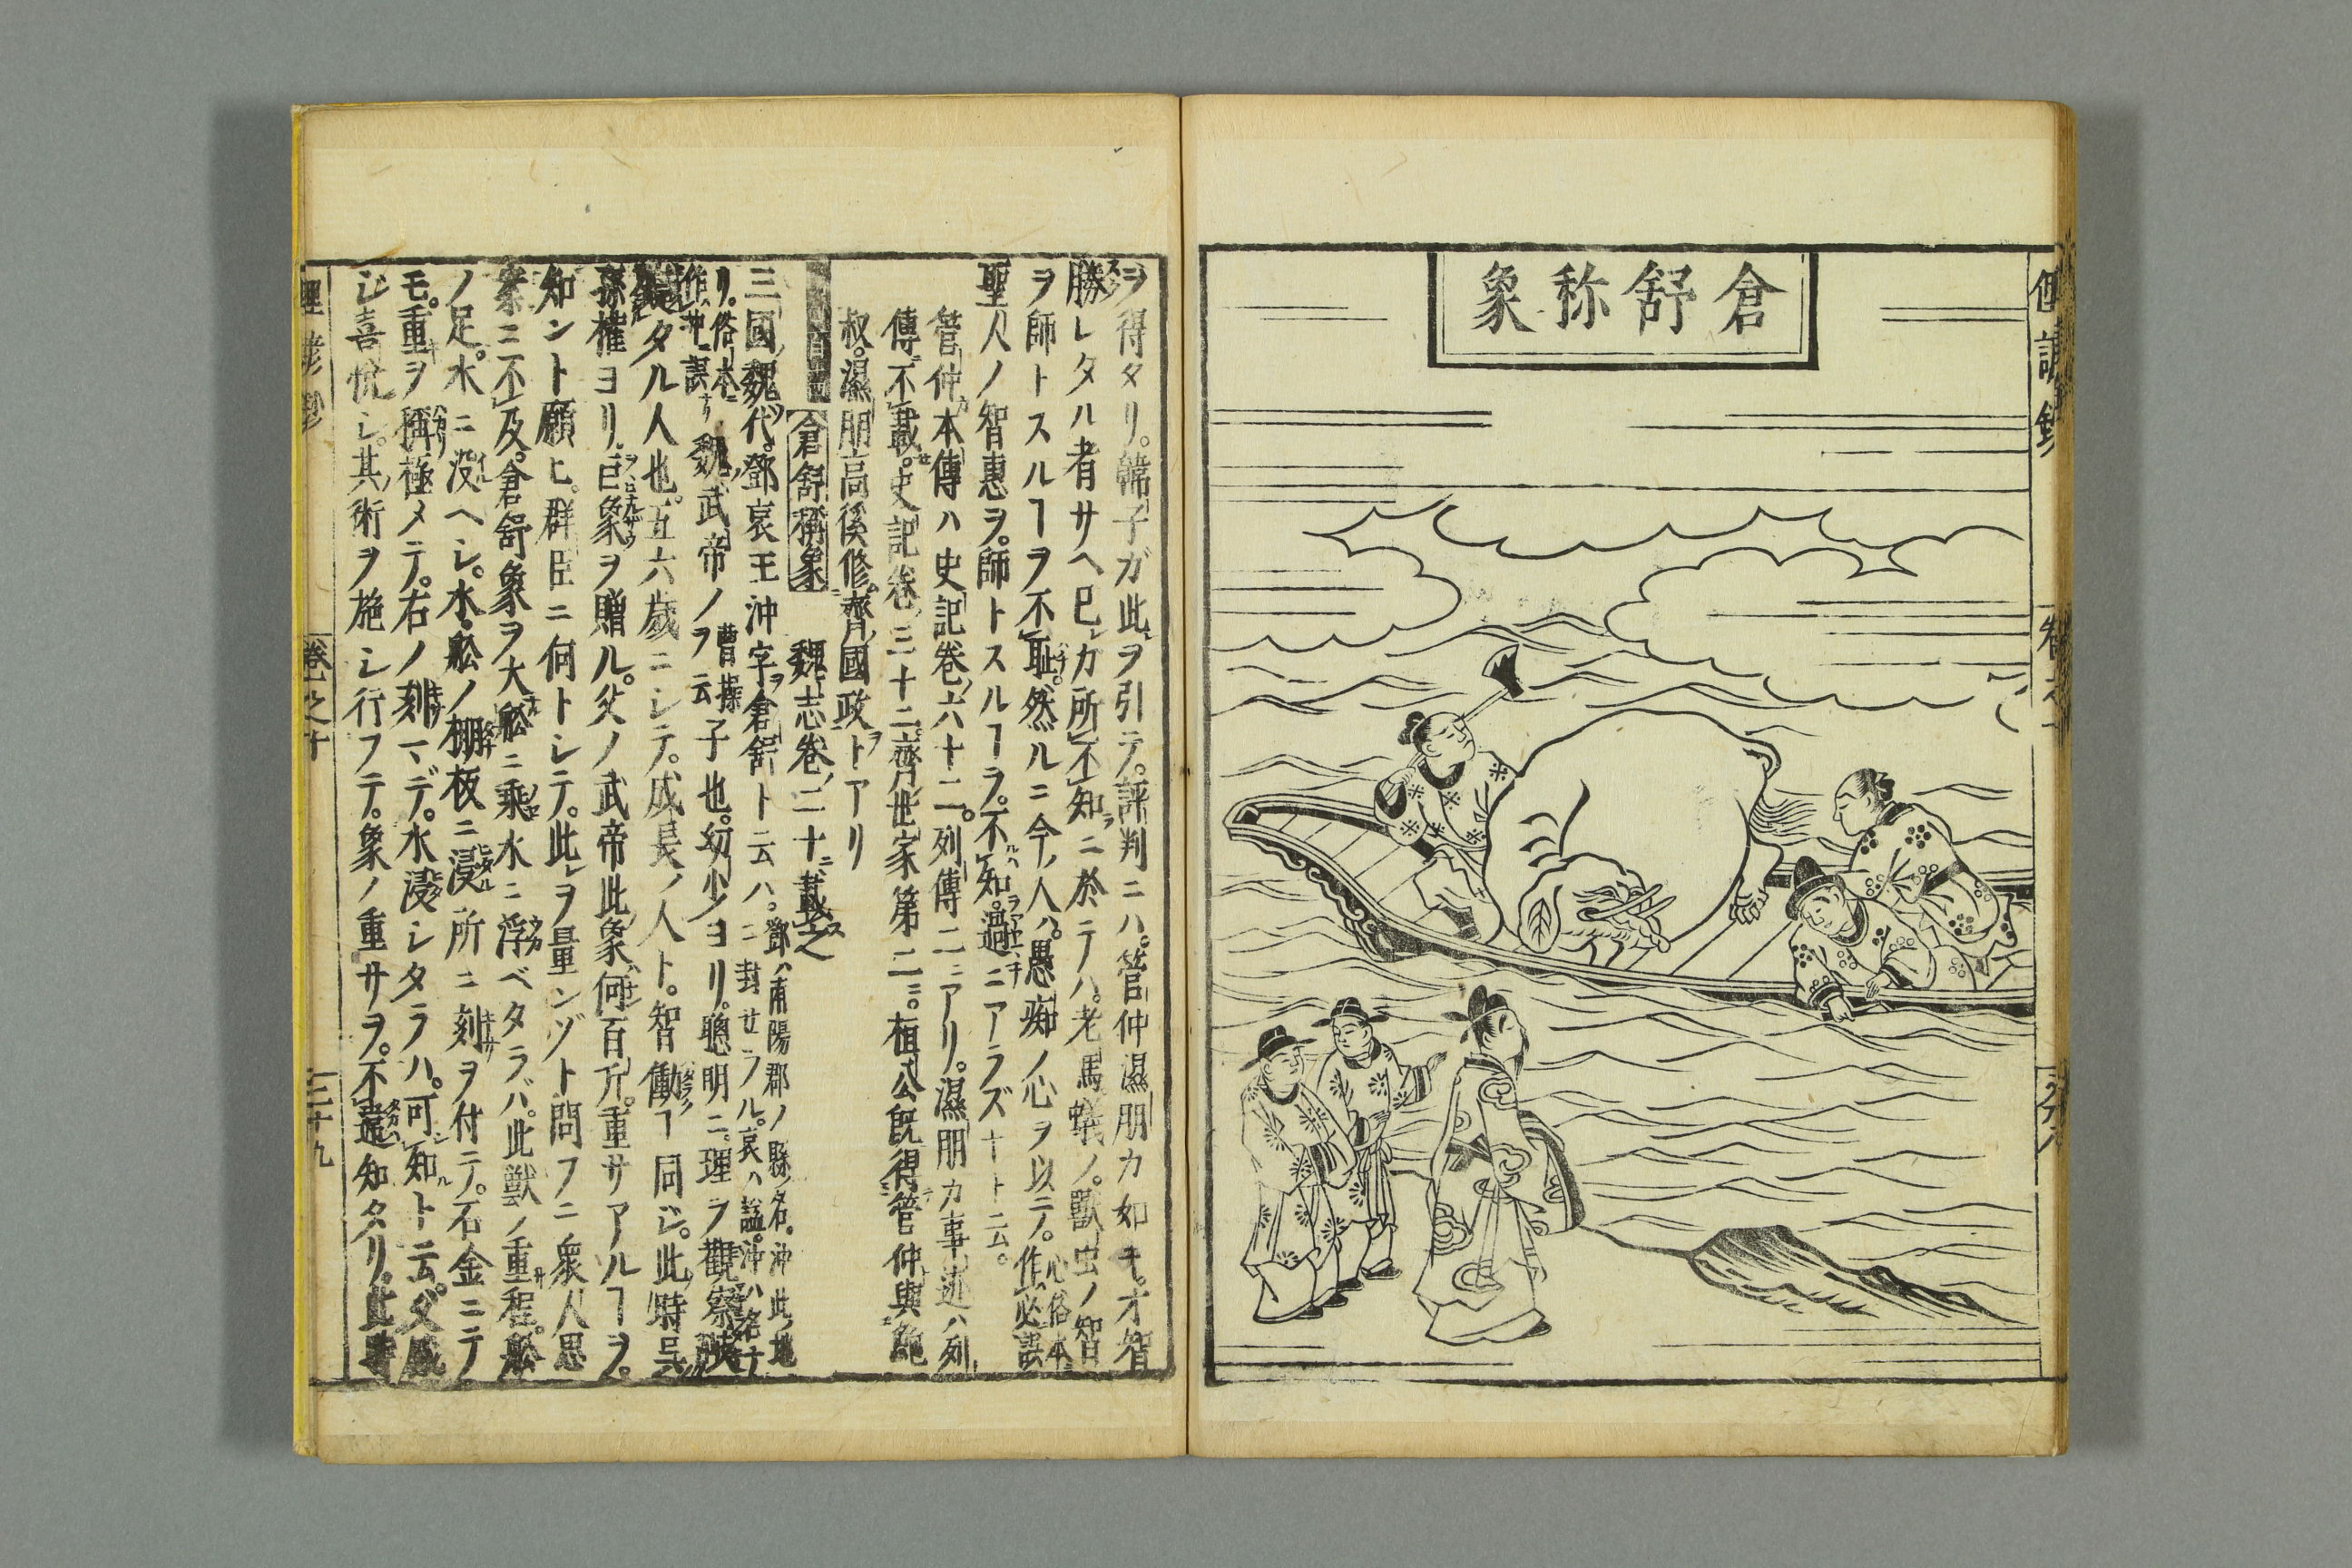 倉舒称象
ヲ得タリ。韓子ガ此ヲ引テ。評判ニハ。管仲濕朋カ如キ。才智
勝レタル者サヘ已カ所不知ニ於テハ。老馬蟻ノ。獸虫ノ智
ヲ師トスルヿヲ不恥。然ルニ今ノ人ハ。愚痴ノ心ヲ以ニノ。
聖人ノ智惠ヲ。師トスルヿヲ。不知。過ニアラズヤト云。
管仲本傳ハ史記卷六十二。列傳二ニアリ。濕朋カ事迹ハ列
傳不載。史記卷三十二。齊世家第二ニ。桓公既得管仲與鮑
叔。濕朋高傒修齊國政トアリ
倉舒稱象 魏志卷二十ニ載之
三國魏代。鄧哀王沖字倉舒ト云ハ。鄧ハ南陽郡ノ縣ノ名。沖此地
ニ封セラル。哀ハ諡。沖ハ名ナ
リ。俗本ニ
作仲誤
魏武帝ノ曹操ヲ云子也。幼少ヨリ。聰明ニ。理ヲ觀察
識タル人也。五六歳ニシテ。成長ノ人ト。智働ヿ同ジ。此時呉
孫権ヨリ。巨象ヲ贈ル。父ノ武帝此象何百斤。重サアルヿヲ。
知ント願ヒ。群臣ニ何トシテ。此ヲ量ンゾト問フニ衆人思
案ニ不及。倉舒象ヲ大舩ニ乘水ニ浮ベタラバ。此獸ノ重程。舩
ノ足。水ニ没ヘシ。水舩ノ棚板ニ浸所ニ刻ヲ付テ。石金ニテ
モ。重ヲ稱極メテ。右ノ刻マデ。水浸シタラハ。可知ト云。父感
ジ喜悦シ。其術ヲ施シ行フテ。象ノ重サヲ。不違知タリ。此時
卷之十
三十九